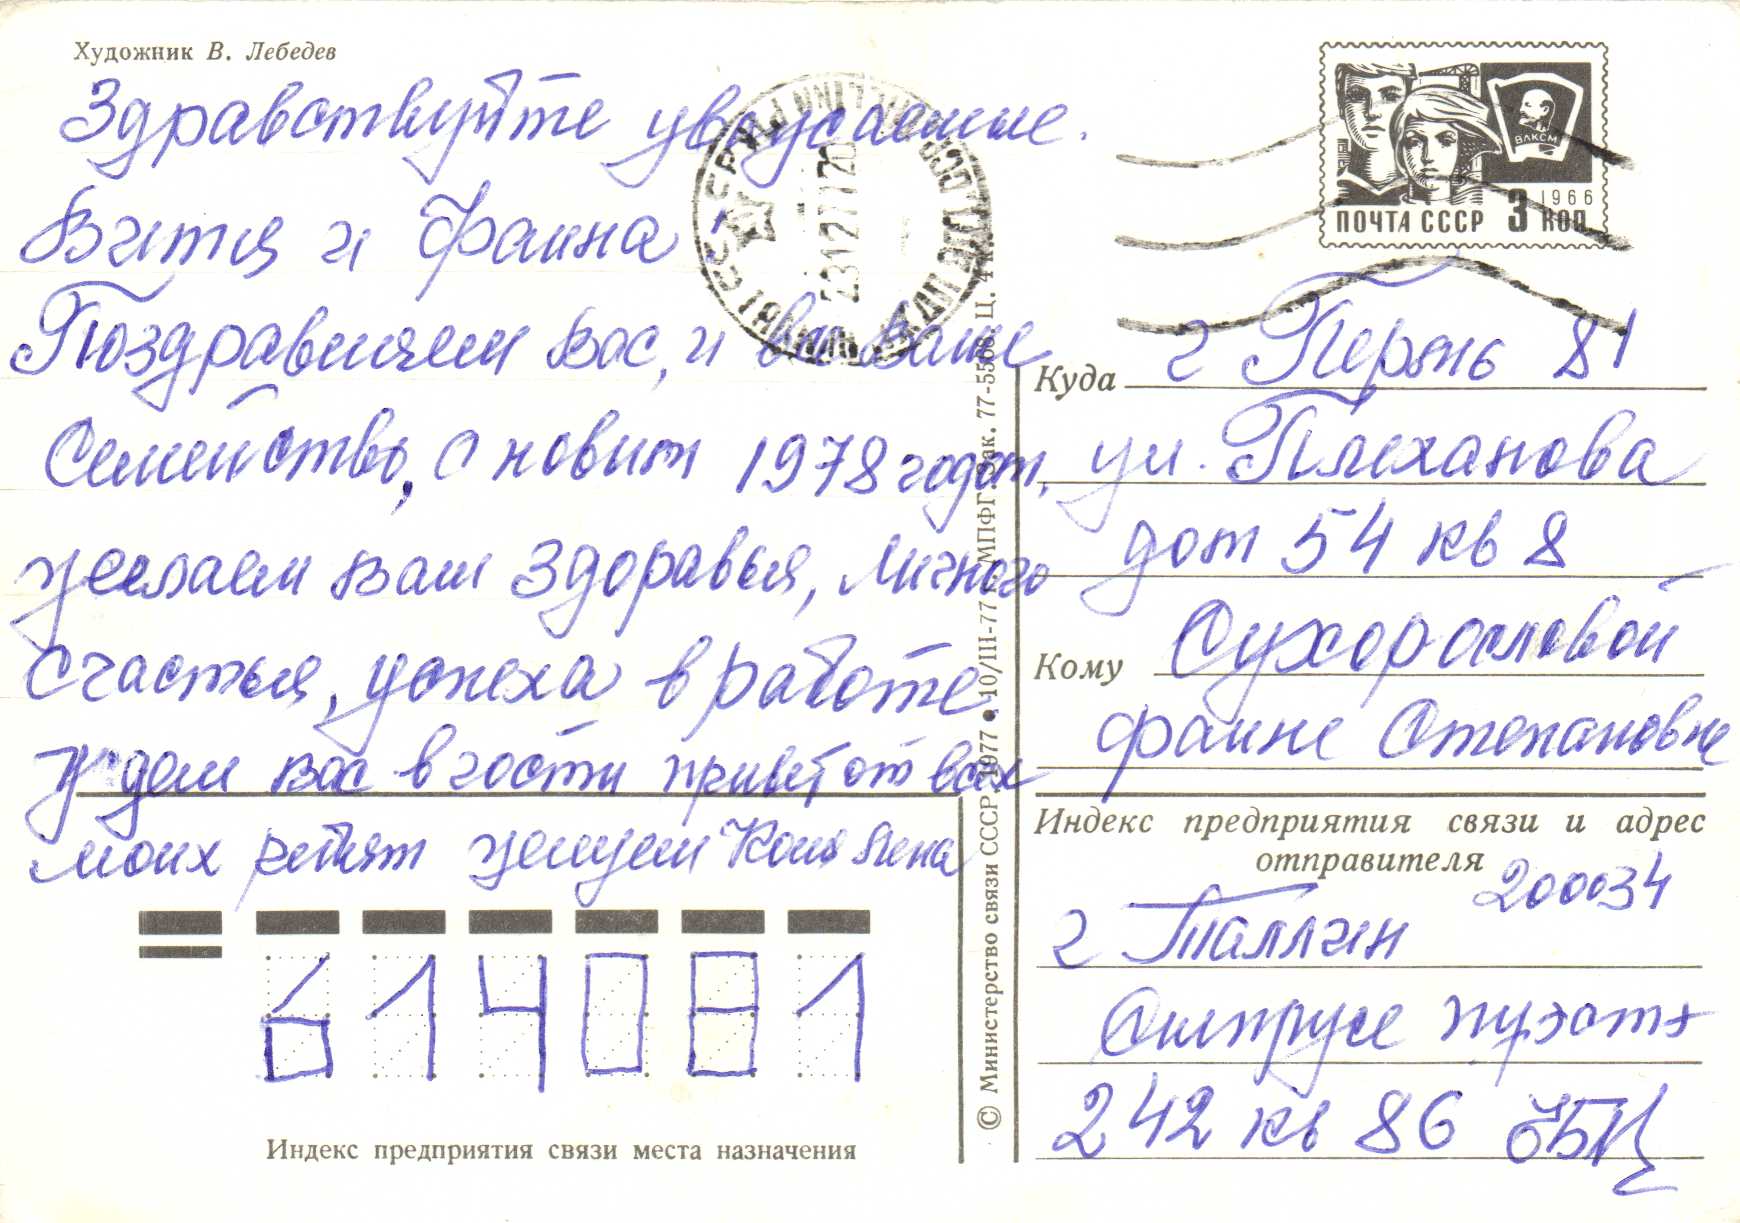 Художник В. Лебедев
Здравствуйте уважаемые.
Витя и Фаина
Поздравляем вас, и ваше
семейство, с новим 1978 годом,
желаем вам здоровья, личного
счастья, успеха в работе.
ждем вас в гости привет от всех
моих ребят целуем Коля Лена
ВЛКСМ
1966
ПОЧТА СССР 3 КОП
231277 20
Куда г Пермь 81
ул. Плеханова
дом 54 кв 8
Кому Сухорословой
Фаине Степановне
Индекс предприятия связи и адрес
отправителя
200034
г Таллин
242 кв 86
614081
Индекс предприятия связи места назначения
© Министерство связи СССР, 1977 • 10/III-77 г. МПФГ Зак. 77-5568. Ц. 4 к.